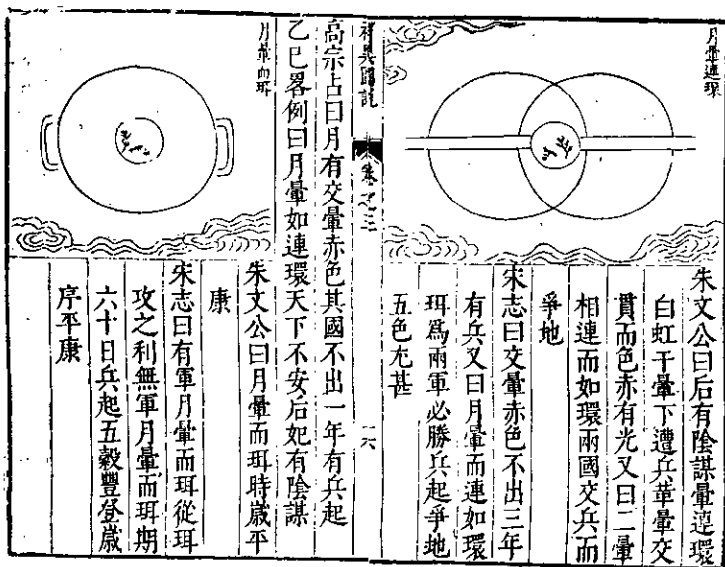 月暈連環
朱文公曰后有陰謀暈連環
白虹干暈下遭兵革暈交
貫而色赤有光又曰二暈
相連而如環兩國交兵而
爭地
宋志曰交暈赤色不出三年
有兵又曰月暈而連如環
珥為兩軍必勝兵起爭地
五色尤甚
祥異圖說
卷之三
十六
高宗占曰月有交暈赤色其國不出一年有兵起
乙巳畧例曰月暈如連環天下不安后妃有陰謀
月暈而珥
朱文公曰月暈而珥時歲平
康
宋志曰有軍月暈而珥從珥
攻之利無軍月暈而珥期
六十日兵起五穀豐登歲
序平康